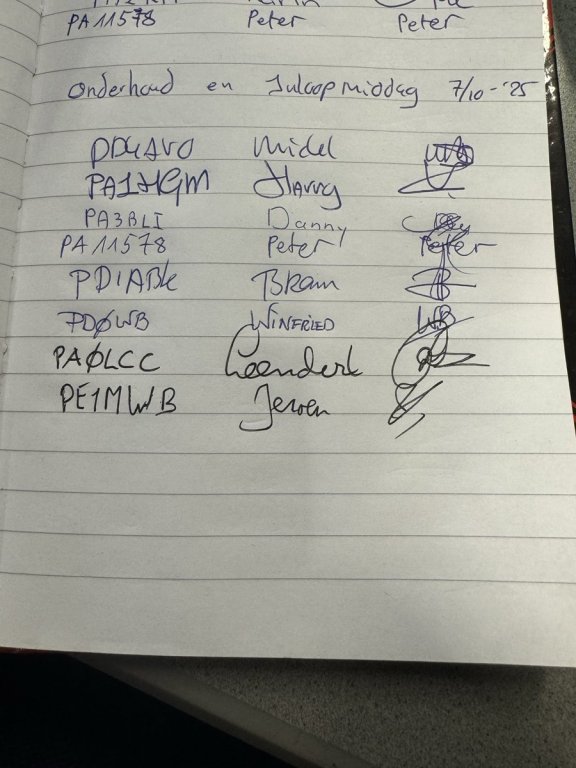 PA11578 Peter Peter
Onderhoud en Inloopmiddag 7/10-'25
PD4AVO Michel
PA1HGM Harry
PA3BLI Danny
PA11578 Peter Peter
PD1ABK Bram
PDØWB WINFRIED WB
PAØLCC Leendert
PE1MWB Jeroen